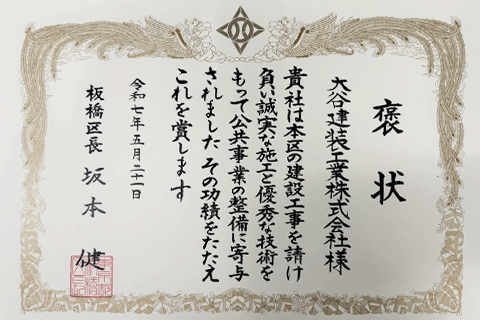 褒状
大谷建装工業株式会社様
貴社は本区の建設工事を請け
負い誠実な施工と優秀な技術を
もって公共事業の整備に寄与
されました その功績をたたえ
これを賞します
令和七年五月二十一日
板橋区長 坂本 健